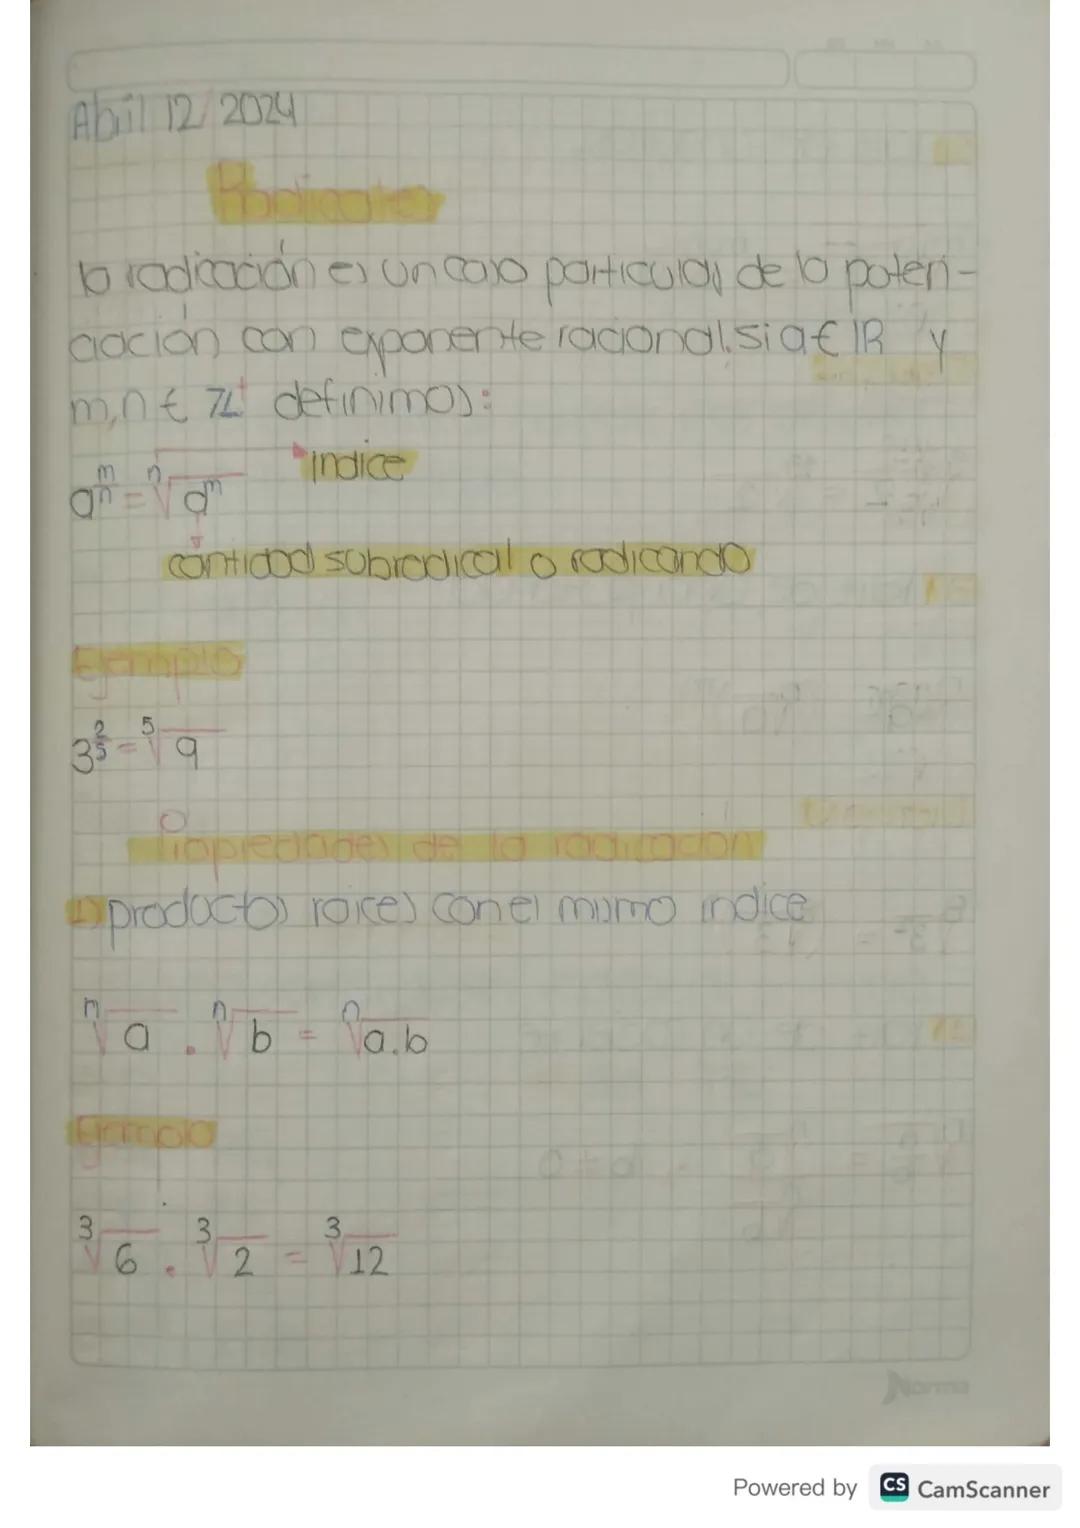 Abril 12/2024
Radicales
la radicación es un caso particular de la poten-
ciación con exponente racional. si a ∈ ℝ y
m,n ∈ ℤ⁺ definimos:
índice
a^(m/n) = ⁿ√a^m
cantidad subradical o radicando
Ejemplo
3^(2/5) = ⁵√9
Propiedades de la radicación
1) productos raices con el mismo indice
ⁿ√a . ⁿ√b = ⁿ√a.b
Ejemplo
³√6 . ³√2 = ³√12
Norma
Powered by CS CamScanner